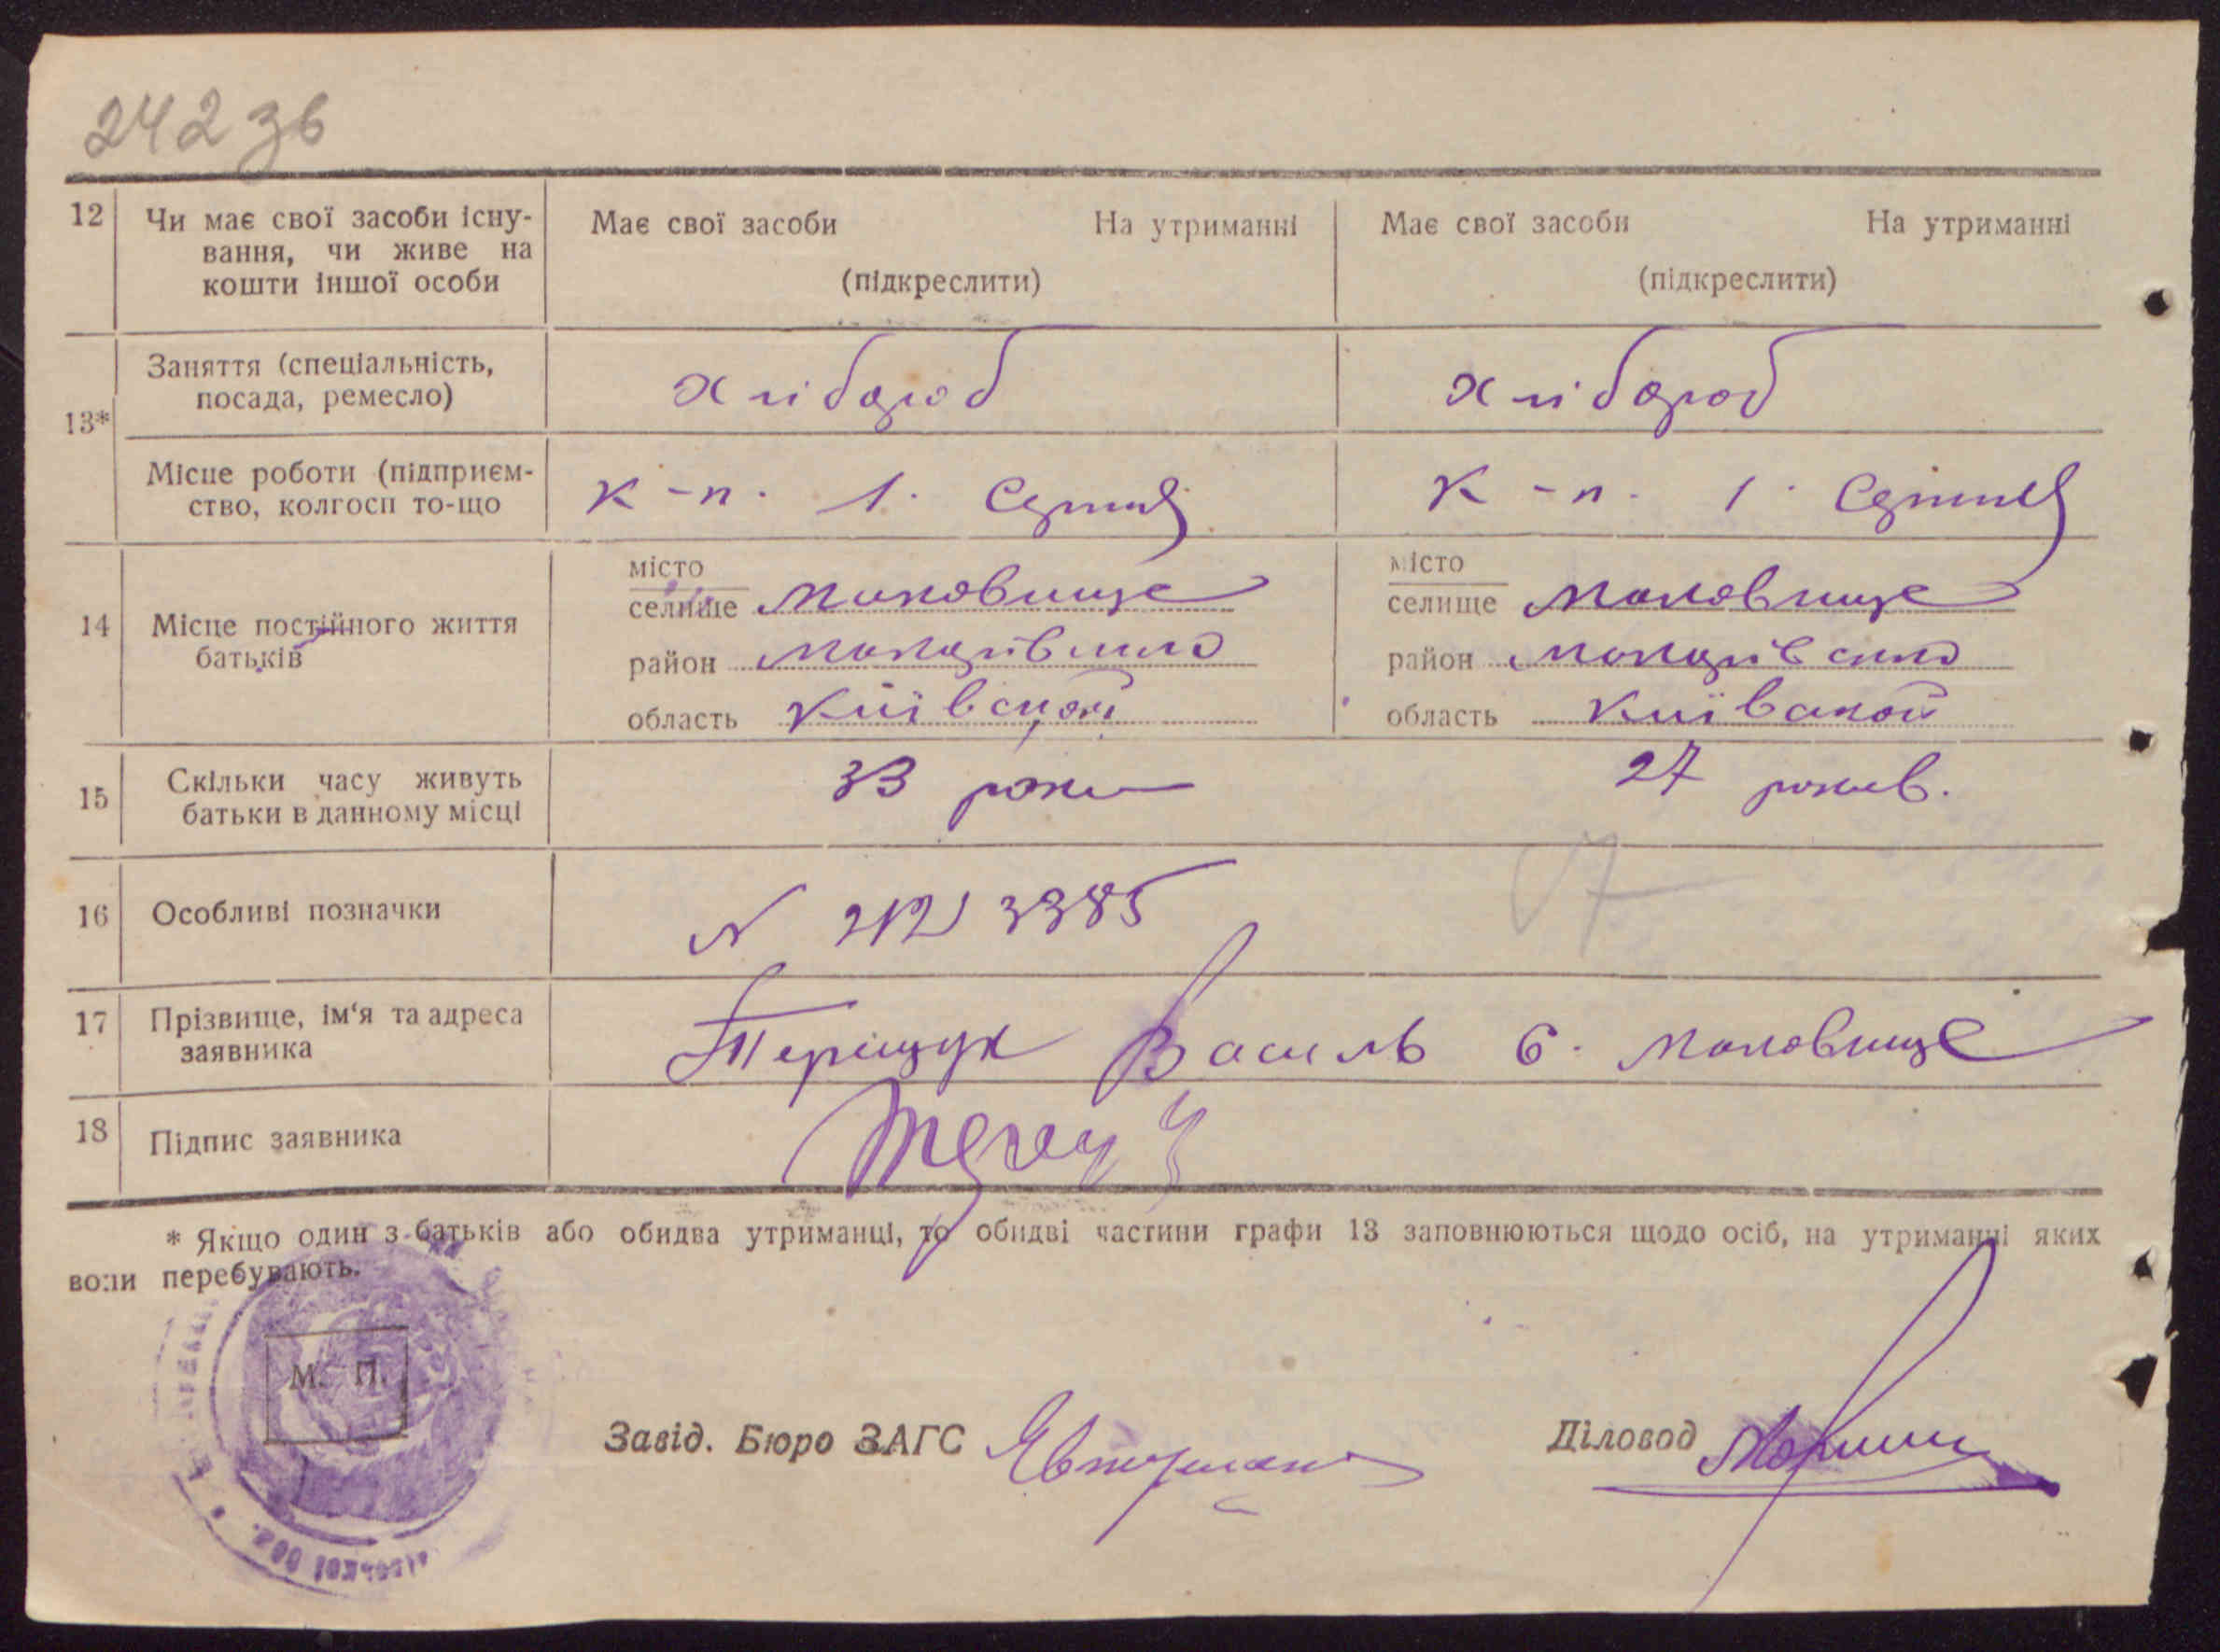 242 зв
12 Чи має свої засоби існу-
вання, чи живе на
кошти іншої особи
Має свої засоби На утриманні
(підкреслити)
Має свої засоби На утриманні
(підкреслити)
13*
Заняття (спеціальність,
посада, ремесло)
хлібороб
хлібороб
Місце роботи (підприєм-
ство, колгосп то-що
к-п. 1.
к-п. 1.
14 Місце постійного життя
батьків
місто
селище Маковище
район Макарівського
область Київської
місто
селище Маковище
район Макарівського
область Київської
15 Скільки часу живуть
батьки в данному місці
33 роки
27 років.
16 Особливі позначки
N 3385
17 Прізвище, ім'я та адреса
заявника
Терещук Василь с. Маковище
18 Підпис заявника
* Якщо один з батьків або обидва утриманці, то обидві частини графи 13 заповнюються щодо осіб, на утриманні яких
вони перебувають.
М. П.
Завід. Бюро ЗАГС
Діловод